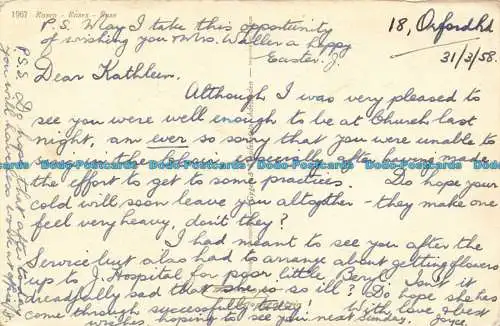 1967 Rosen - Roses - Rose
P.S. May I take this opportunity
of wishing you & Mrs. Waller a happy
Easter. J.
18, Oxford Rd
31/3/58.
Dear Kathleen.
Although I was very pleased to
see you were well enough to be at Church last
night, am ever so sorry that you were unable to
sing in the Choir especially after having made
the effort to get to some practices. Do hope your
cold will soon leave you altogether - they make one
feel very heavy, don't they?
I had meant to see you after the
Service but also had to arrange about getting flowers
up to J. Hospital for poor little Beryl. Isn't it
dreadfully sad that she is so ill? Do hope she has
come through successfully today! With love & best
wishes. hoping to see you next Sunday. Joyce.
P.S.S. Do hope that after to-day
you will have
Bodo-Postcards Bodo-Postcards Bodo-Postcards Bodo-Postcards
Bodo-Postcards Bodo-Postcards Bodo-Postcards Bodo-Postcards